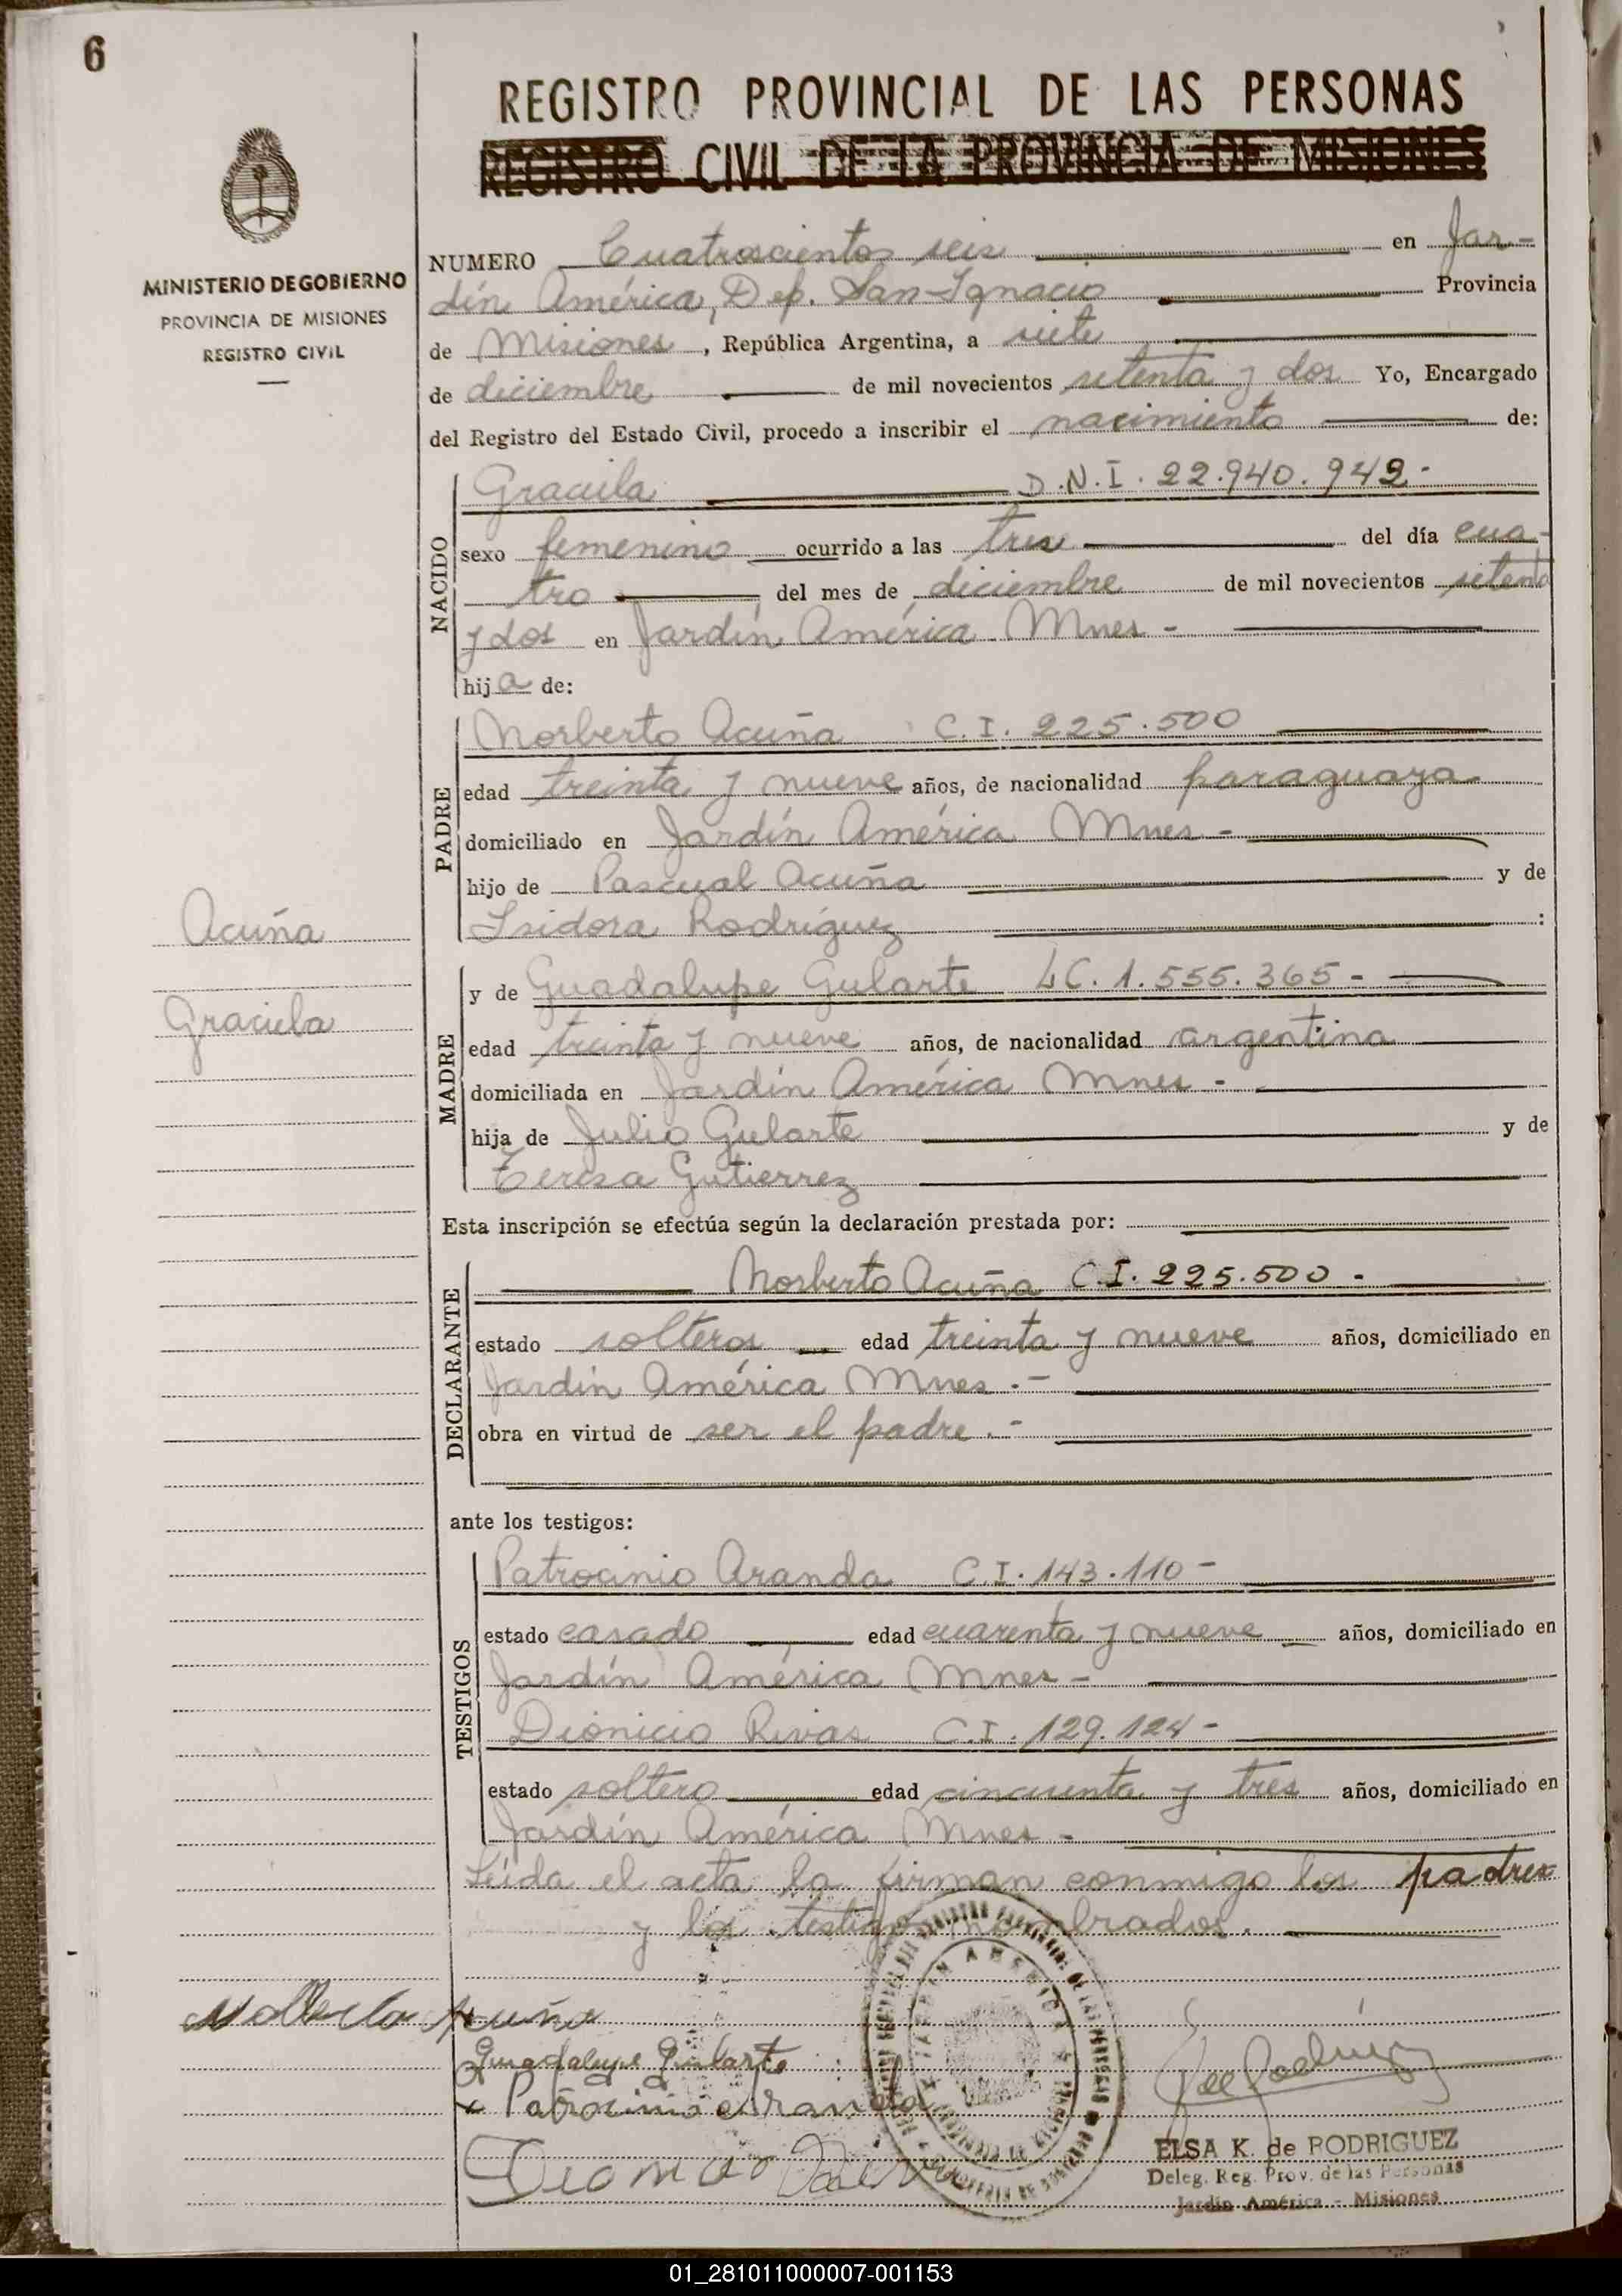 6
REGISTRO PROVINCIAL DE LAS PERSONAS
REGISTRO CIVIL DE LA PROVINCIA DE MISIONES
MINISTERIO DE GOBIERNO
PROVINCIA DE MISIONES
REGISTRO CIVIL
NUMERO Cuatroscientos seis en Jar-
dín América, Dep. San Ignacio Provincia
de Misiones, República Argentina, a siete
de diciembre de mil novecientos setenta y dos Yo, Encargado
del Registro del Estado Civil, procedo a inscribir el nacimiento de:
NACIDO
Graciela D.N.I. 22.940.942-
sexo femenino ocurrido a las tres del día cua-
tro del mes de diciembre de mil novecientos setenta
y dos en Jardín América Mnes -
hija de:
PADRE
Norberto Acuña C.I. 225.500
edad treinta y nueve años, de nacionalidad paraguaya
domiciliado en Jardín América Mnes -
hijo de Pascual Acuña y de
Isidora Rodríguez :
Acuña
Graciela
MADRE
y de Guadalupe Gularte LC. 1.555.365-
edad treinta y nueve años, de nacionalidad argentina
domiciliada en Jardín América Mnes -
hija de Julio Gularte y de
Teresa Gutierrez
Esta inscripción se efectúa según la declaración prestada por:
DECLARANTE
Norberto Acuña C.I. 225.500 -
estado soltero edad treinta y nueve años, domiciliado en
Jardín América Mnes.-
obra en virtud de ser el padre.-
ante los testigos:
TESTIGOS
Patrocinio Aranda C.I. 143.110-
estado casado edad cuarenta y nueve años, domiciliado en
Jardín América Mnes-
Dionicio Rivas C.I. 129.124-
estado soltero edad cincuenta y tres años, domiciliado en
Jardín América Mnes-
Leída el acta la firman conmigo los padres
y los testigos nombrados.
Norberto Acuña
Guadalupe Gularte
x Patrocinio Aranda
Dionicio
ELSA K. de RODRIGUEZ
Deleg. Reg. Prov. de las Personas
Jardín América - Misiones
01_281011000007-001153